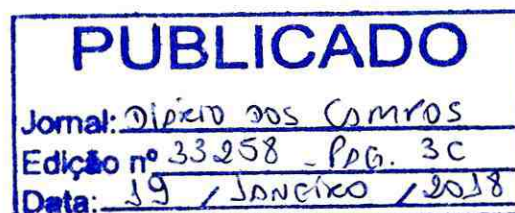 PUBLICADO
Jornal: DIÁRIO DOS CAMPOS
Edição nº 33258 - PÁG. 3C
Data: 19 / JANEIRO / 2018